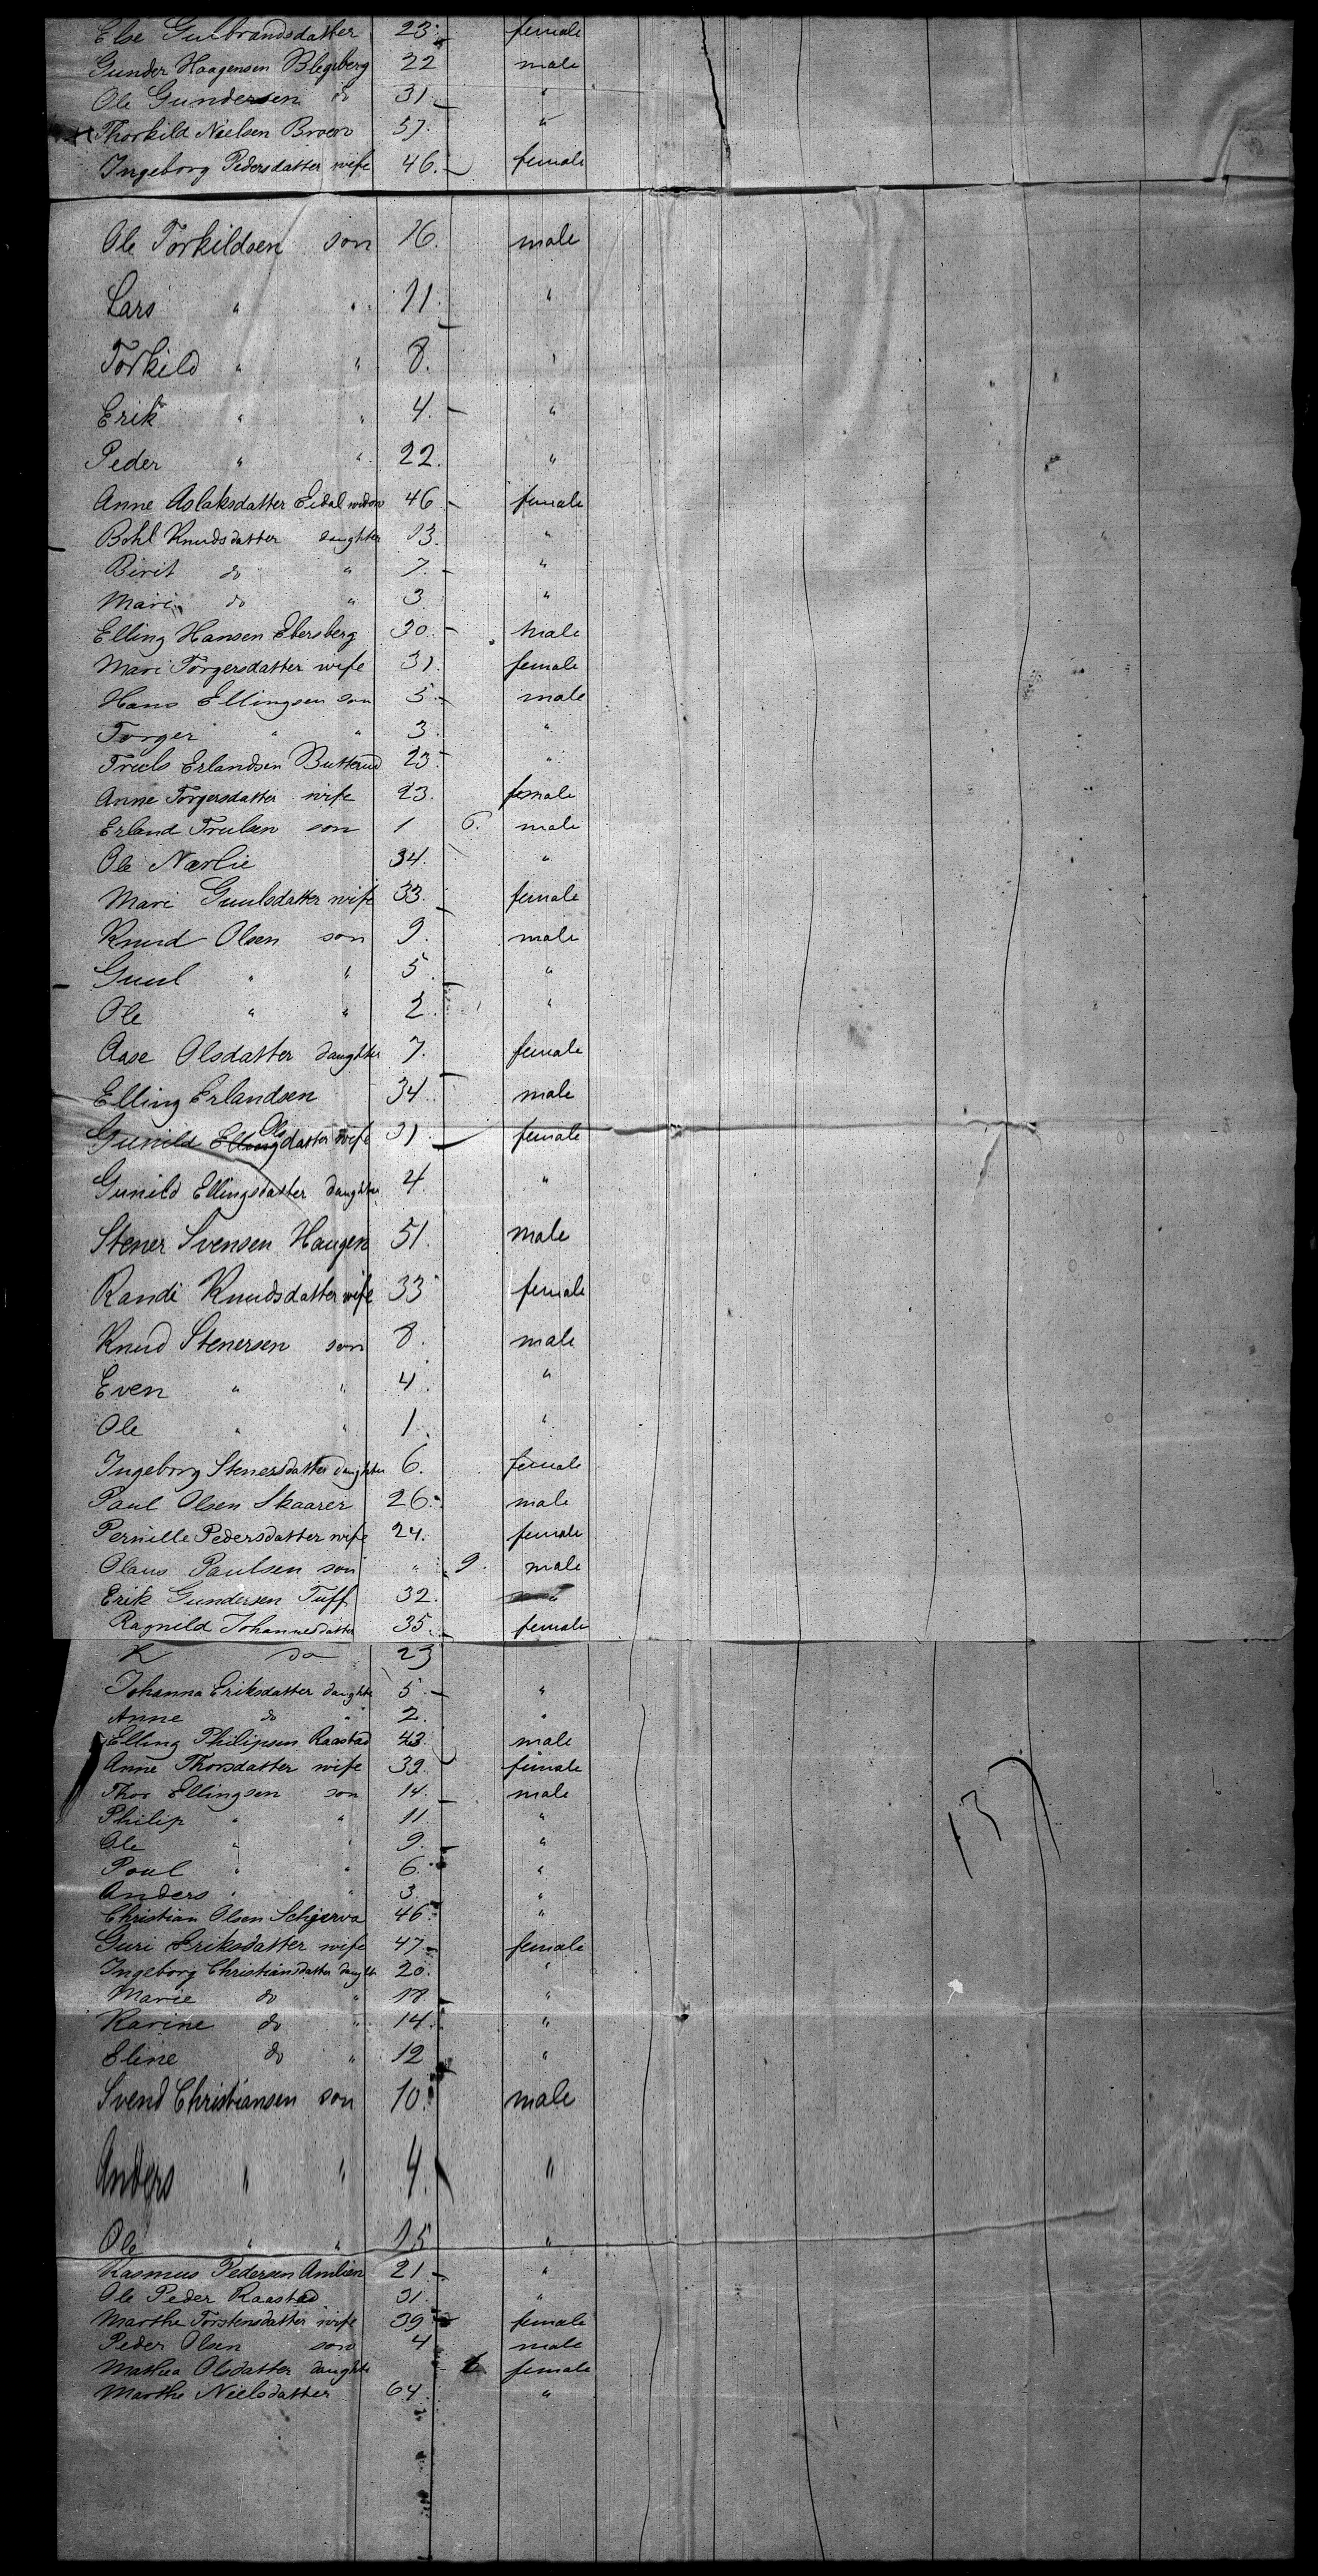 Else Gulbrandsdatter 23. female
Gunder Haagensen Blegeberg 22 male
Ole Gundersen do 31. "
Thorkild Nielsen Broen 57. "
Ingeborg Pedersdatter wife 46. female
Ole Torkildsen son 16. male
Lars " " 11. "
Torkild " " 8. "
Erik " " 4. "
Peder " " 22. "
Anne Aslaksdatter Eidal widow 46 female
Bohl Knudsdatter daughter 13. "
Birit do " 7. "
Mari do " 3 "
Elling Hansen Ebersberg 30. male
Mari Torgersdatter wife 31. female
Hans Ellingsen son 5. male
Torger " " 3. "
Truls Erlandsen Butterud 23. "
Anne Torgersdatter wife 23. female
Erland Trulsen son 1 6. male
Ole Nærlie 34. "
Mari Guulsdatter wife 33. female
Knud Olsen son 9. male
Guul " " 5. "
Ole " " 2. "
Aase Olsdatter daughter 7. female
Elling Erlandsen 34. male
Gunild Olsdatter wife 31. female
Gunild Ellingsdatter daughter 4. "
Stener Svensen Haugen 51. male
Randi Knudsdatter wife 33 female
Knud Stenersen son 8. male
Even " " 4. "
Ole " " 1. "
Ingeborg Stenersdatter daughter 6. female
Paul Olsen Skaarer 26. male
Pernille Pedersdatter wife 24. female
Olaus Paulsen son " 9. male
Erik Gundersen Tuff 32. "
Ragnild Johannesdatter 35. female
K do 23
Johanna Eriksdatter daughter 5. "
Anne do " 2. "
Elling Philipsen Raastad 43. male
Anne Thorsdatter wife 39. female
Thor Ellingsen son 14. male
Philip " " 11. "
Ole " " 9. "
Poul " " 6. "
Anders " " 3. "
Christian Olsen Schjerva 46. "
Guri Eriksdatter wife 47. female
Ingeborg Christiansdatter daughter 20. "
Marie do " 18. "
Karine do " 14. "
Eline do " 12 "
Svend Christiansen son 10. male
Anders " " 4. "
Ole " " 15 "
Rasmus Pedersen Amlien 21 "
Ole Peder Raastad 31. "
Marthe Torstensdatter wife 39 female
Peder Olsen son 4 male
Mathea Olsdatter daughter 6 female
Marthe Nielsdatter 64. "